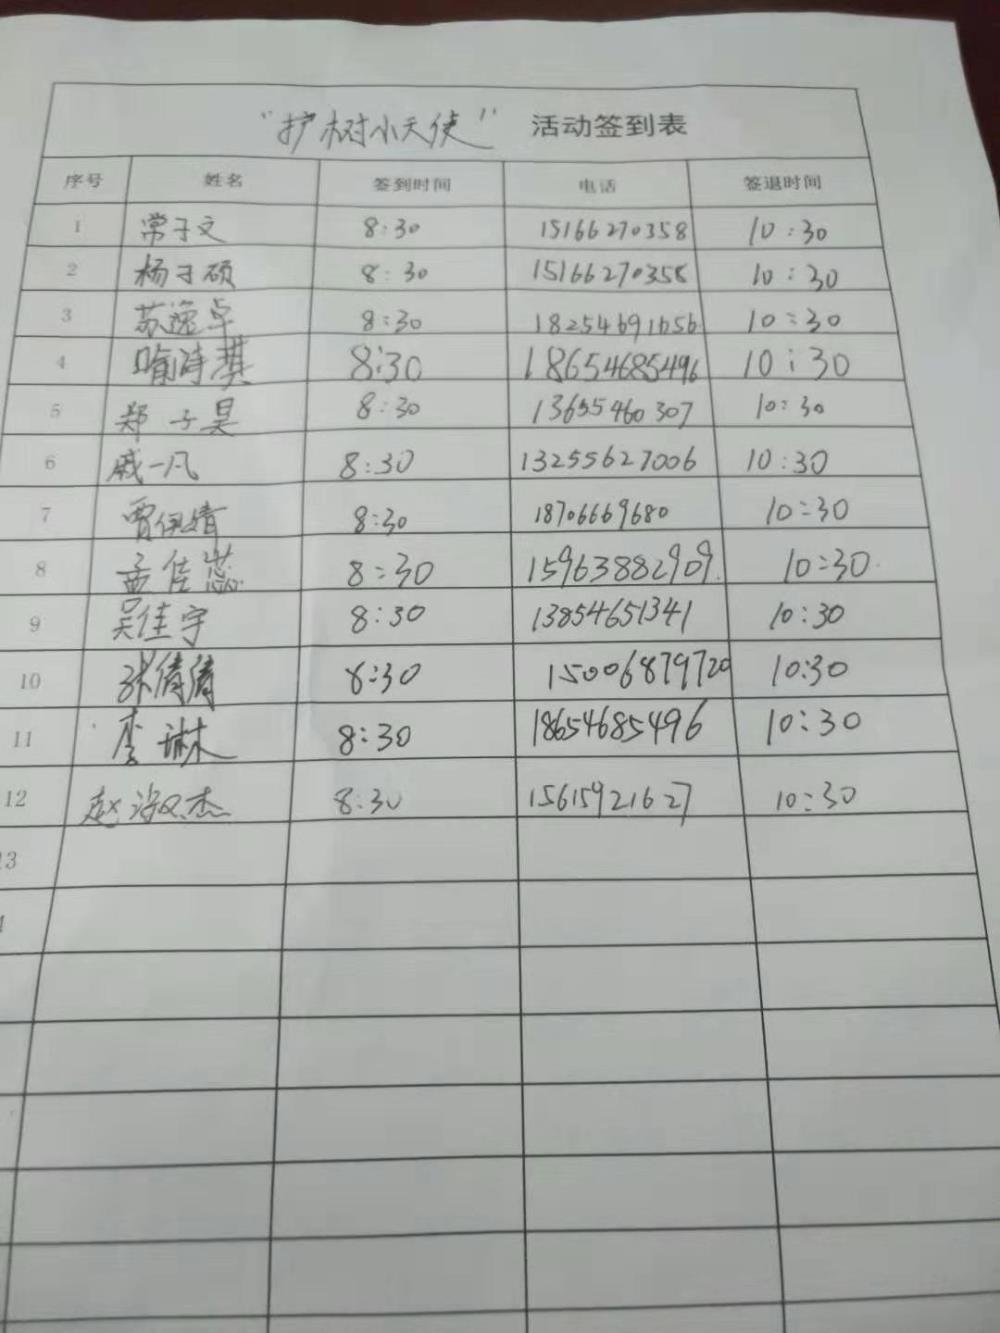 “护树小天使” 活动签到表
序号 姓名 签到时间 电话 签退时间
1 常子文 8:30 15166270358 10:30
2 杨子硕 8:30 15166270358 10:30
3 苏逸卓 8:30 18254691656 10:30
4 喻诗淇 8:30 18654685496 10:30
5 郑子昊 8:30 13655460307 10:30
6 戚一凡 8:30 13255627006 10:30
7 贾伊婧 8:30 18706669680 10:30
8 孟佳蕊 8:30 15963882909 10:30
9 吴佳宇 8:30 13854651341 10:30
10 张倩倩 8:30 15006879720 10:30
11 李琳 8:30 18654685496 10:30
12 赵 杰 8:30 15615921627 10:30
13